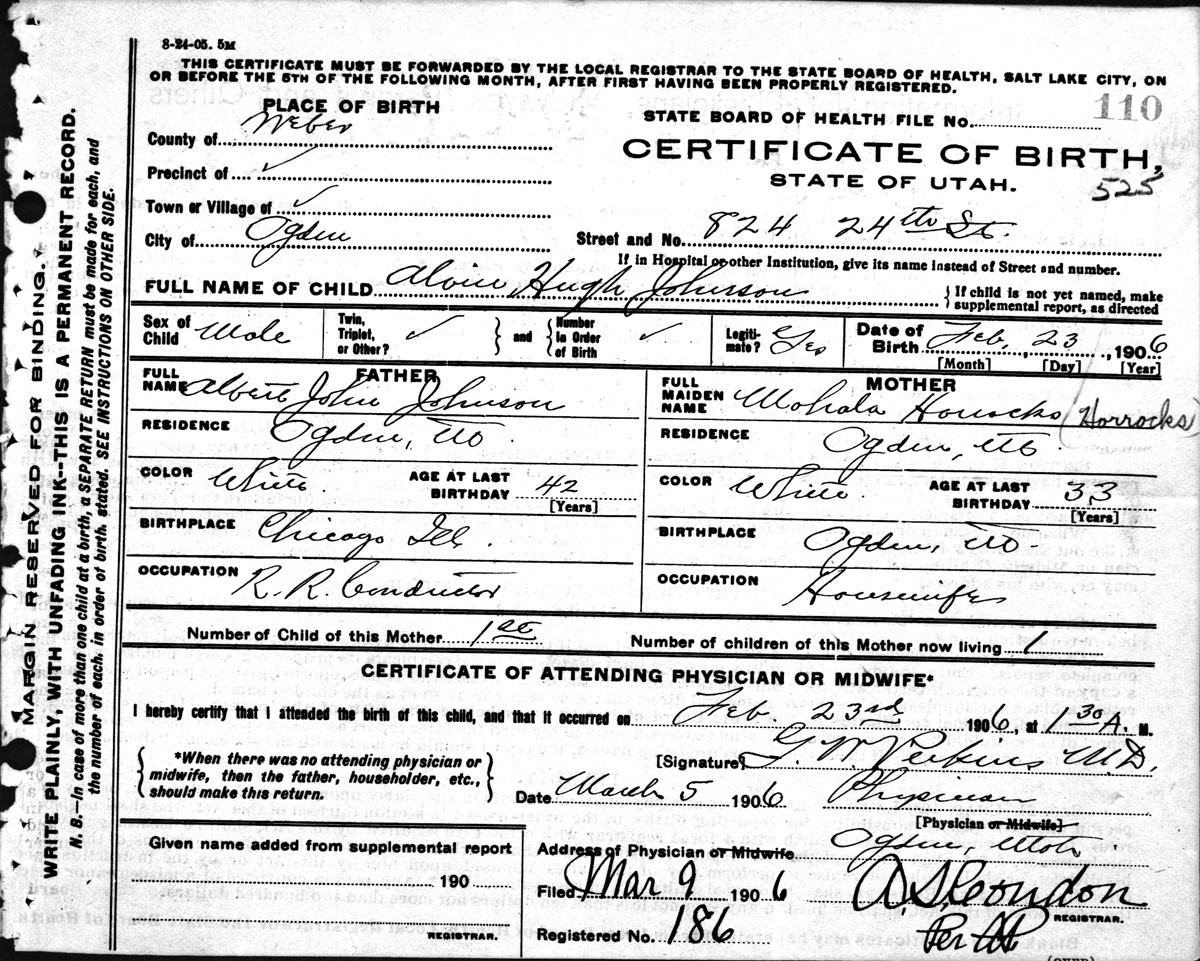 8-24-05. 5M
THIS CERTIFICATE MUST BE FORWARDED BY THE LOCAL REGISTRAR TO THE STATE BOARD OF HEALTH, SALT LAKE CITY, ON
OR BEFORE THE 5TH OF THE FOLLOWING MONTH, AFTER FIRST HAVING BEEN PROPERLY REGISTERED.
PLACE OF BIRTH
STATE BOARD OF HEALTH FILE No. 110
County of Weber
CERTIFICATE OF BIRTH,
Precinct of ✓
STATE OF UTAH.
525
Town or Village of ✓
City of Ogden
Street and No. 824 24th St.
If in Hospital or other Institution, give its name instead of Street and number.
FULL NAME OF CHILD Alvin Hugh Johnson
If child is not yet named, make
supplemental report, as directed
Sex of Child Male
Twin, Triplet, or Other? ✓ and Number in Order of Birth ✓
Legiti- mate? Yes
Date of Birth Feb, 23, 1906
[Month] [Day] [Year]
FATHER
FULL NAME Albert John Johnson
RESIDENCE Ogden, Ut
COLOR White
AGE AT LAST BIRTHDAY 42
[Years]
BIRTHPLACE Chicago Ill.
OCCUPATION R. R. Conductor
MOTHER
FULL MAIDEN NAME Mohala Horrocks (Horrocks)
RESIDENCE Ogden, Ut.
COLOR White.
AGE AT LAST BIRTHDAY 33
[Years]
BIRTHPLACE Ogden, Ut.
OCCUPATION Housewife
Number of Child of this Mother 1st
Number of children of this Mother now living 1
CERTIFICATE OF ATTENDING PHYSICIAN OR MIDWIFE*
I hereby certify that I attended the birth of this child, and that it occurred on Feb. 23rd 1906, at 1 30 A. M.
*When there was no attending physician or
midwife, then the father, householder, etc.,
should make this return.
[Signature] G. W. Perkins M.D.
Date March 5 1906 Physician
[Physician or Midwife]
Given name added from supplemental report
190
REGISTRAR.
Address of Physician or Midwife Ogden, Utah
Filed Mar 9 1906 A. S. Condon
REGISTRAR.
Registered No. 186 Per
(OVER)
MARGIN RESERVED FOR BINDING.
WRITE PLAINLY, WITH UNFADING INK--THIS IS A PERMANENT RECORD.
N. B.--In case of more than one child at a birth, a SEPARATE RETURN must be made for each, and
the number of each, in order of birth, stated. SEE INSTRUCTIONS ON OTHER SIDE.